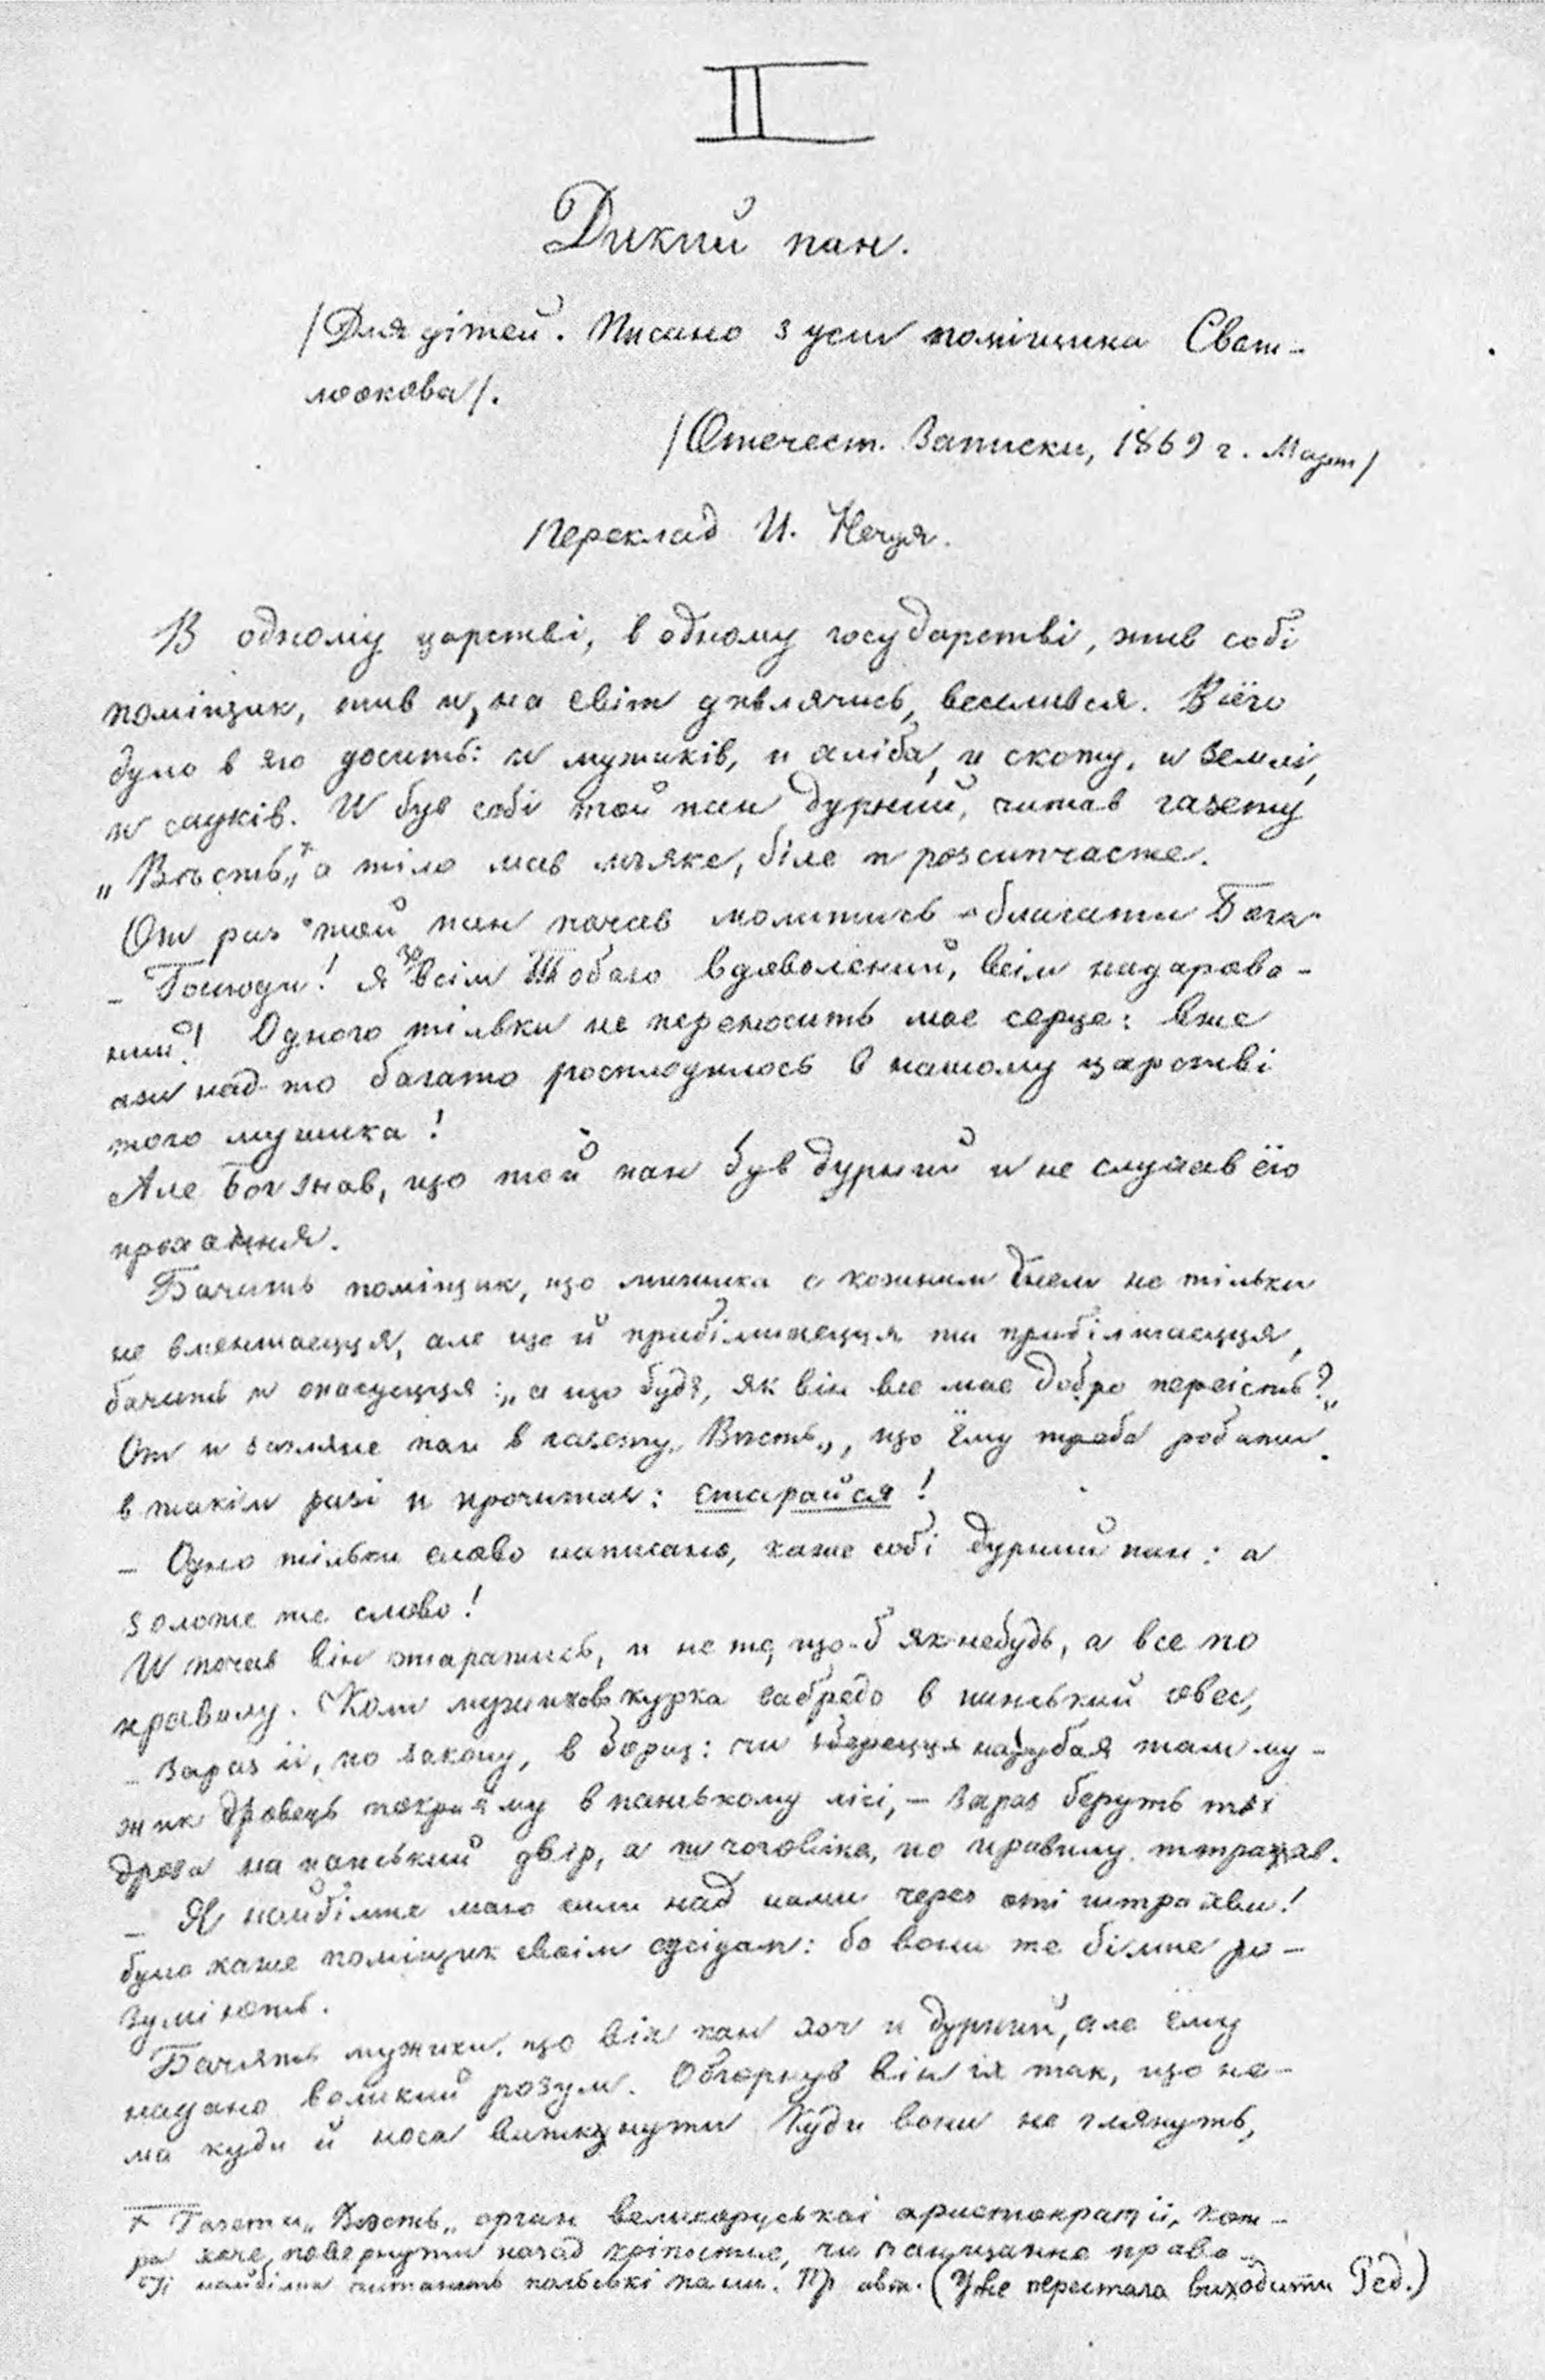 II
Дикий пан.
/Для дітей. Писано з усм поміщика Свѣт-
лоокова/.
/Отечест. Записки, 1869 г. Март/
Переклад И. Нечуя.
В одному царстві, в одному государстві, жив собі
поміщик, жив и, на світ дивлячись, веселився. Всёго
було в ёго доситъ: и мужиків, и хліба, и скоту, и землі,
и садків. И був собі той пан дурний, читав газету
„Вѣсть„ а тіло мав мьяке, біле и розсипчасте.
От раз той пан почав молитись благати Бога
– Господи! Я зо всім тобою вдоволений, всім надарова-
ний! Одного тільки не переносить мое серце: вже
аж над-то багато росплодилось в нашому царстві
того мужика!
Але Бог знав, що той пан був дурний и не слухав ёго
прохання.
Бачить поміщик, що мужика с кожним днем не тільки
не вменшаецця, але ще й прибільшаецця та прибільшаецця,
бачить и опасуецця: „а що буде, як він все мое добро переість?„
От и загляне пан в газету „Вѣсть„, що ёму треба робити
в такім разі и прочитае: старайся!
– Одно тільки слово написано, каже собі дурний пан: а
золоте те слово!
И почав він старатись, и не то, що-б як-небудь, а все по
правилу. Коли мужикова курка забреде в панський овес,
– зараз іі, по закону, в борщ: чи збереция нарубая там му-
жик дровець покриёму в панському лісі, – зараз беруть тиі
дрова на панський двір, а з чоловіка, по правилу штрахав.
– Я найбільше маю сили над ними через оті штрахви!
було каже поміщик своім сусідам: бо вони те більше ро-
зуміють.
Бачять мужики, що він пан хоч и дурний, але ёму
надано великий розум. Обгорнув він іх так, що не-
ма куди й носа виткнути Куди вони не глянуть,
+ Газета „Вѣсть„ орган великоруськоі аристократіі, кот-
ра хоче, повернути назад кріпостне, чи панщанне право
Іі найбільш читають польські пани. Пр авт. (Уже перестала виходити Ред.)